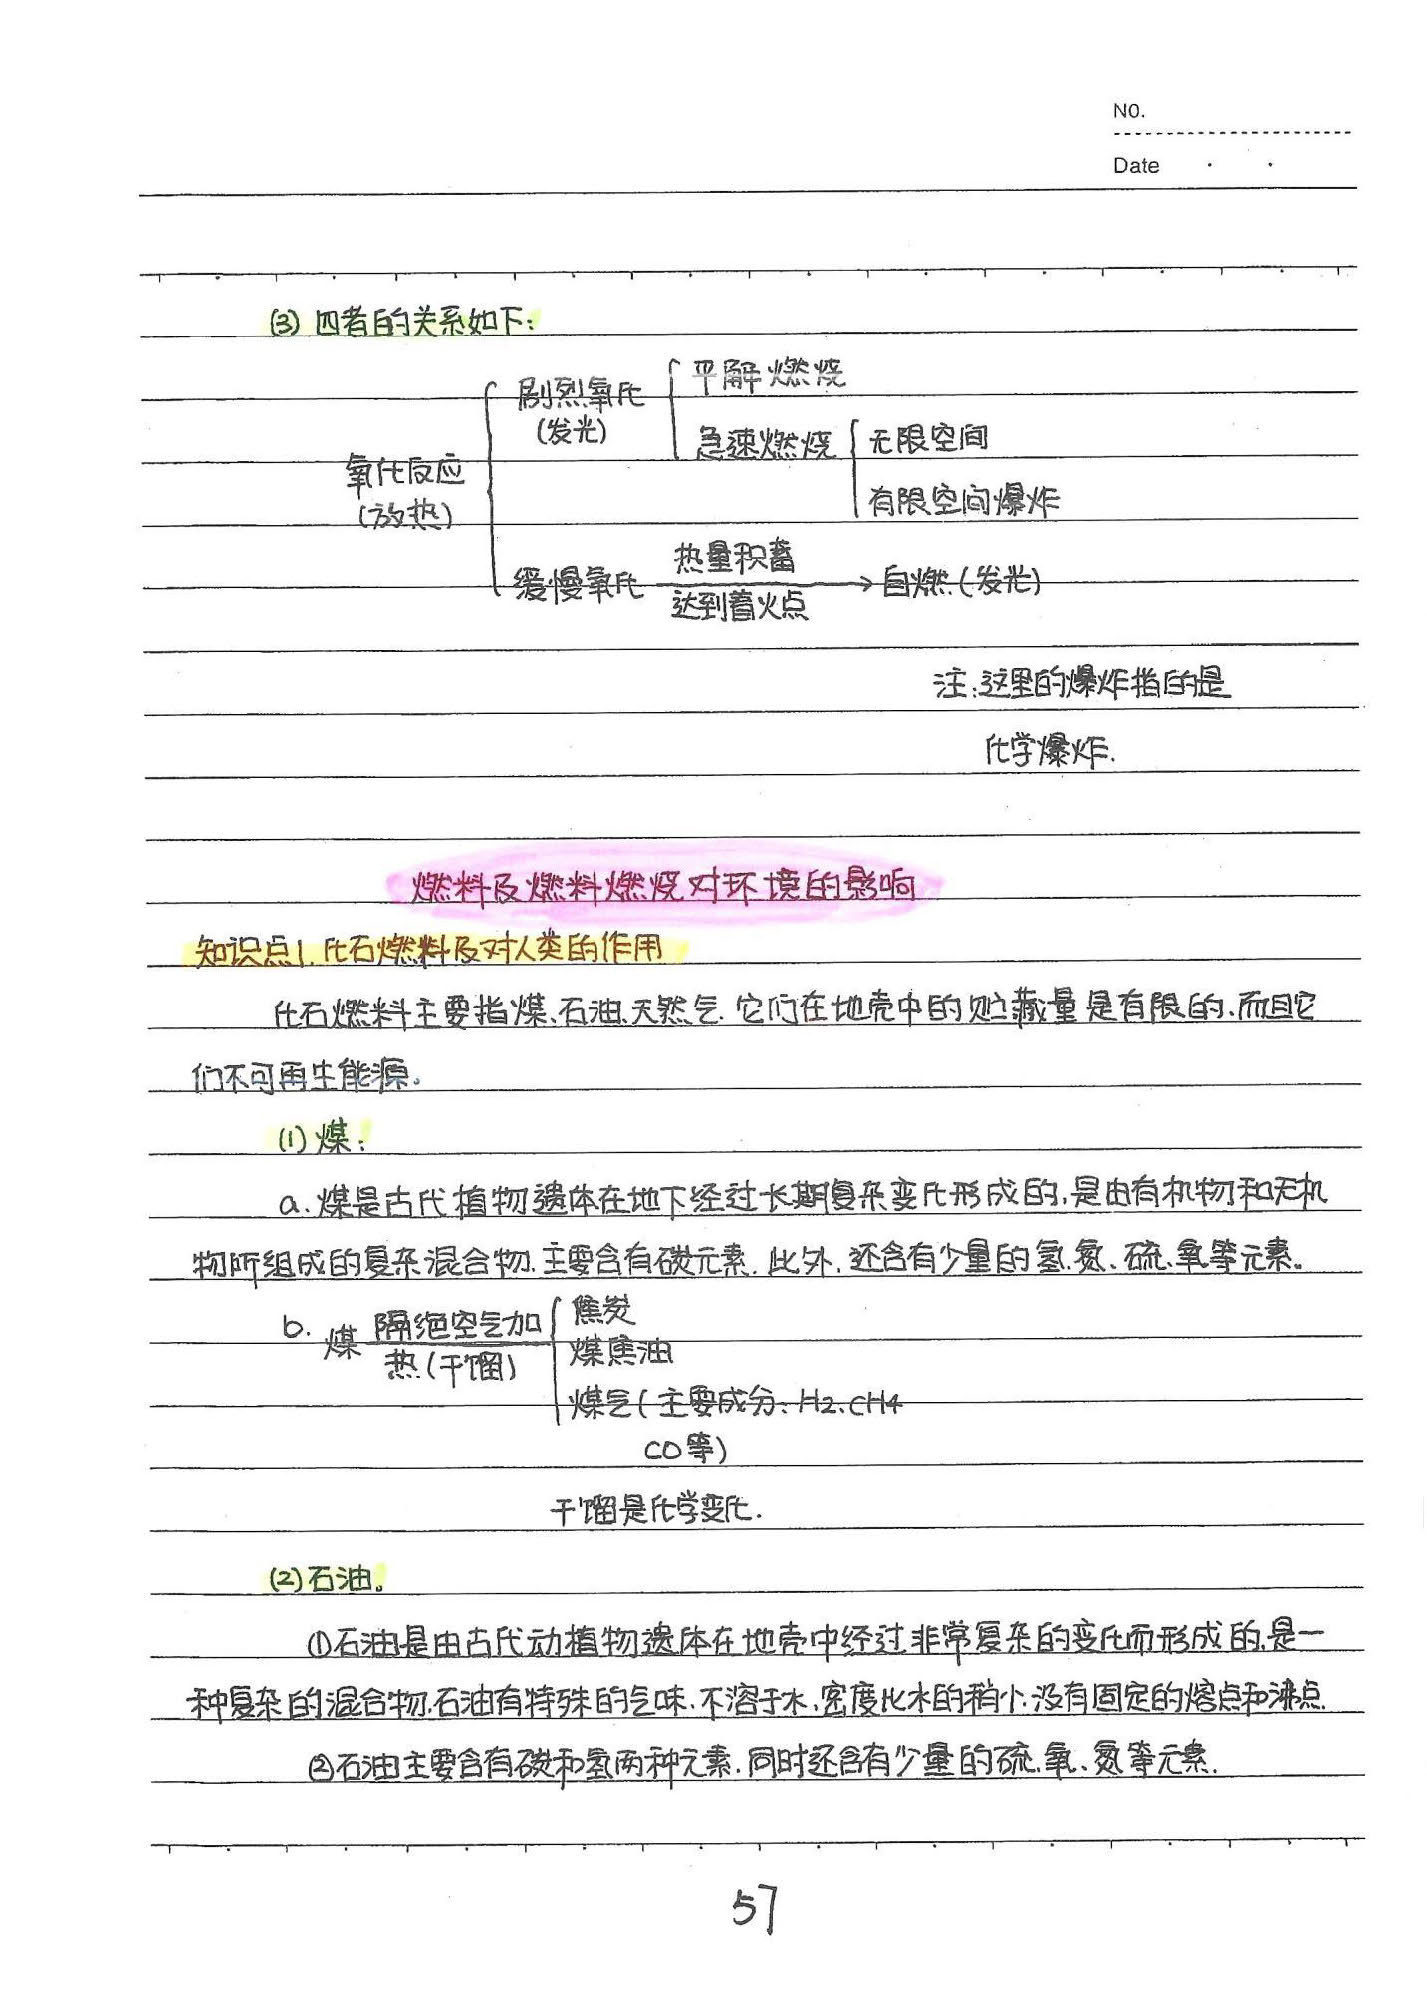 NO.
Date
(3) 四者的关系如下:
剧烈氧化
(发光)
平解燃烧
急速燃烧
无限空间
有限空间爆炸
氧化反应
(放热)
缓慢氧化
热量积蓄
达到着火点
自燃(发光)
注:这里的爆炸指的是
化学爆炸.
燃料及燃料燃烧对环境的影响
知识点1.化石燃料及对人类的作用
化石燃料主要指煤、石油、天然气.它们在地壳中的贮藏量是有限的,而且它
们不可再生能源.
(1)煤:
a.煤是古代植物遗体在地下经过长期复杂变化形成的,是由有机物和无机
物所组成的复杂混合物.主要含有碳元素.此外,还含有少量的氢、氮、硫、氧等元素。
b.
煤
隔绝空气加
热(干馏)
焦炭
煤焦油
煤气(主要成分:H2、CH4
CO等)
干馏是化学变化.
(2)石油。
①石油是由古代动植物遗体在地壳中经过非常复杂的变化而形成的,是一
种复杂的混合物.石油有特殊的气味.不溶于水,密度比水的稍小.没有固定的熔点和沸点.
②石油主要含有碳和氢两种元素.同时还含有少量的硫、氧、氮等元素.
57